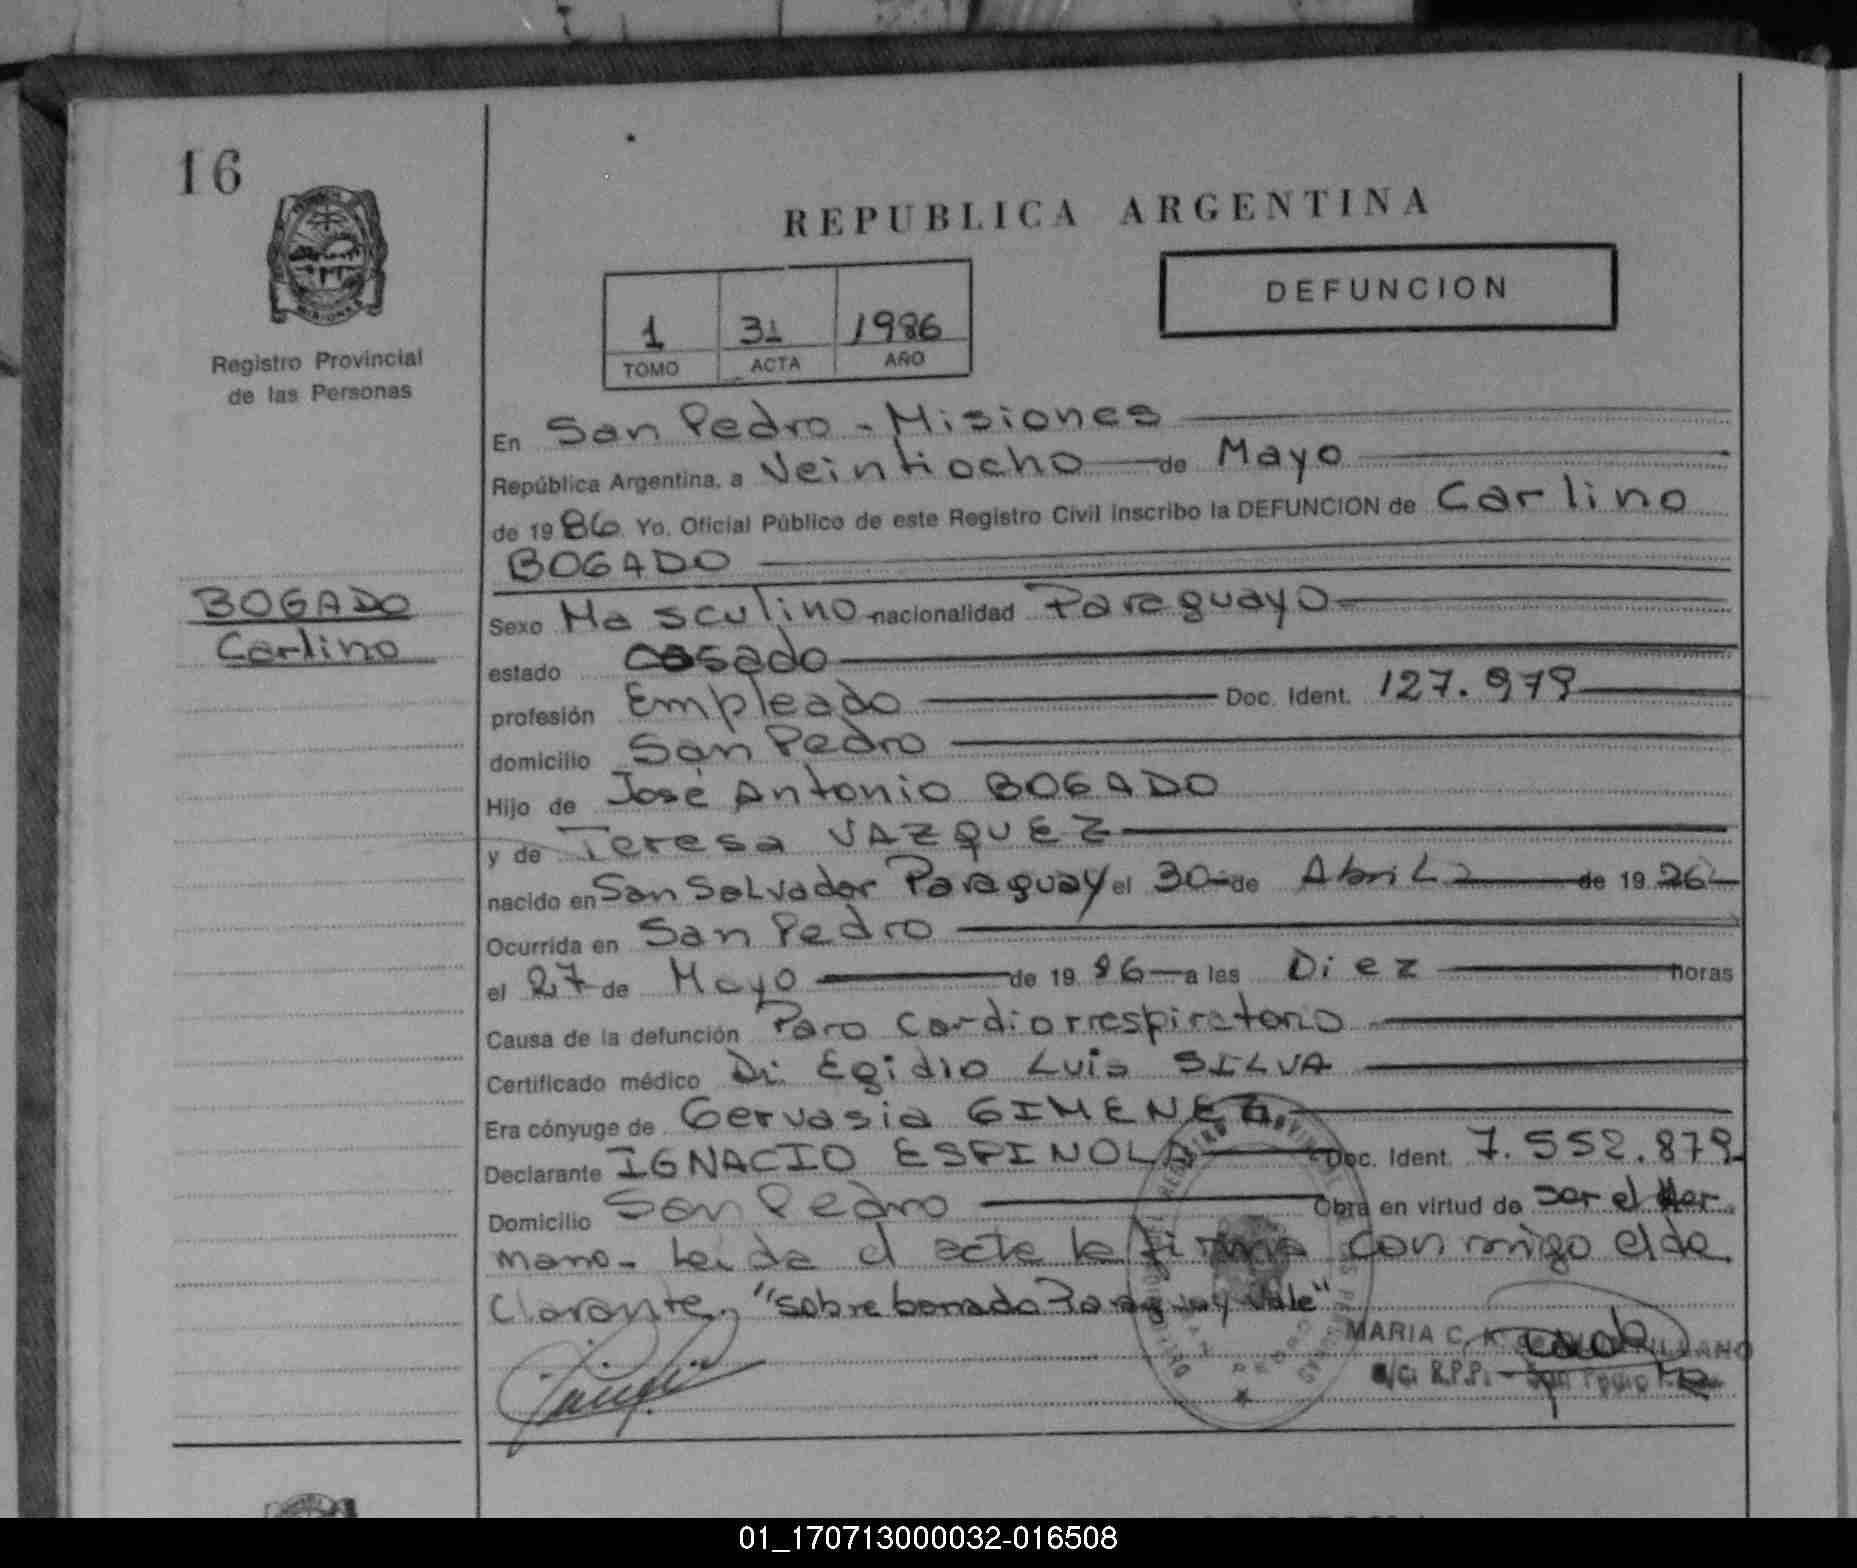 16
REPUBLICA ARGENTINA
DEFUNCION
1 31 1986
TOMO ACTA AÑO
Registro Provincial
de las Personas
En San Pedro - Misiones
República Argentina, a Veintiocho de Mayo
de 1986 Yo, Oficial Público de este Registro Civil inscribo la DEFUNCION de Carlino
BOGADO
BOGADO
Carlino
Sexo Masculino nacionalidad Paraguayo
estado casado
profesión Empleado Doc. Ident. 127.979
domicilio San Pedro
Hijo de José Antonio BOGADO
y de Teresa VAZQUEZ
nacido en San Salvador Paraguay el 30 de Abril de 1926
Ocurrida en San Pedro
el 27 de Mayo de 1986 a las Diez horas
Causa de la defunción Paro Cardiorrespiratorio
Certificado médico Dr. Egidio Luis SILVA
Era cónyuge de Gervasia GIMENEZ
Declarante IGNACIO ESPINOLA Doc. Ident. 7.552.879
Domicilio San Pedro Obra en virtud de ser el Her
mano - Leída el acta la firma con migo el de
clarante, "sobre borrado Paraguay Vale"
MARIA C. K. de
a/c. R.P.P. - San Pedro
01_170713000032-016508